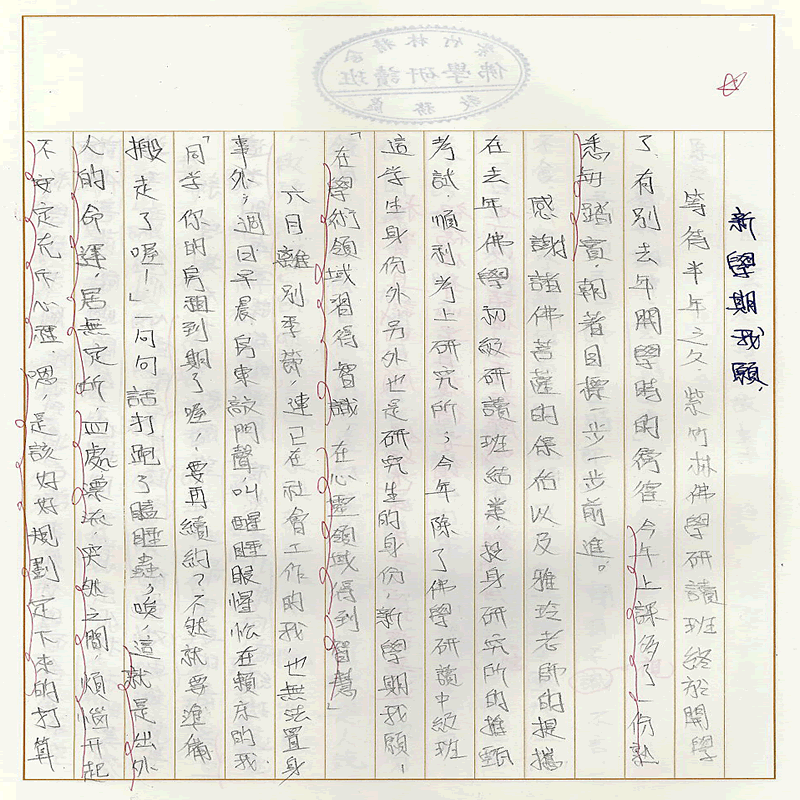 紫竹林精舍
佛學研讀班
教務處
新學期我願
等待半年之久,紫竹林佛學研讀班終於開學
了,有別去年開學時的徬徨,今年上課多了一份熟
悉與踏實,朝著目標一步一步前進。
感謝諸佛菩薩的保佑以及雅玲老師的提攜
在去年佛學初級研讀班結業,投身研究所的推甄
考試,順利考上研究所;今年除了佛學研讀中級班
這學生身份外另外也是研究生的身份,新學期我願,
「在學術領域習得智識,在心靈領域得到智慧」
六月離別季節,連已在社會工作的我,也無法置身
事外,週日早晨房東敲門聲,叫醒睡眼惺忪在賴床的我
「同學,你的房租到期了喔,要再續約?不然就要準備
搬走了喔!」一句句話打跑了瞌睡蟲,唉,這就是出外
人的命運,居無定所,四處漂流,突然之間,煩惱升起
不安定充斥心裡,嗯,是該好好規劃,定下來的打算